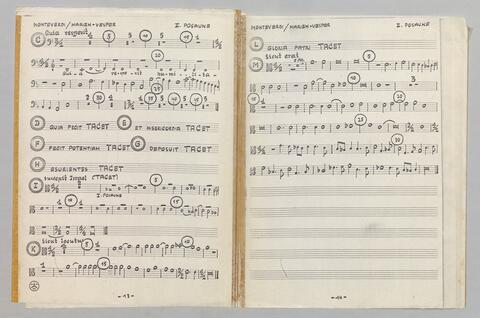 MONTEVERDI / MARIEN-VESPER I. POSAUNE
C Quia respexit
5 10 15
20
Qui-a re-spe-xit hu-mi-li-ta-
25
30
D QUIA FECIT TACET E ET MISERICORDIA TACET
F FECIT POTENTIAM TACET G DEPOSUIT TACET
H ESURIENTES TACET
I Suscepit Israel (TACET)
5
I. POSAUNE
10 15
K Sicut locutus
5 10
15
- 13 -
MONTEVERDI / MARIEN-VESPER I. POSAUNE
L GLORIA PATRI TACET
M Sicut erat
5
10 3
15 20
25
30
- 14 -